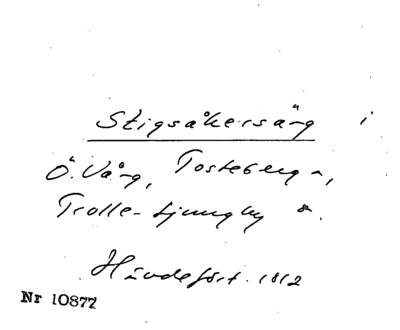 Stigsåkersäng i
Ö. Vång, Tosteberga,
Trolle-Ljungby &.
Häradsört. 1812
Nr 10877